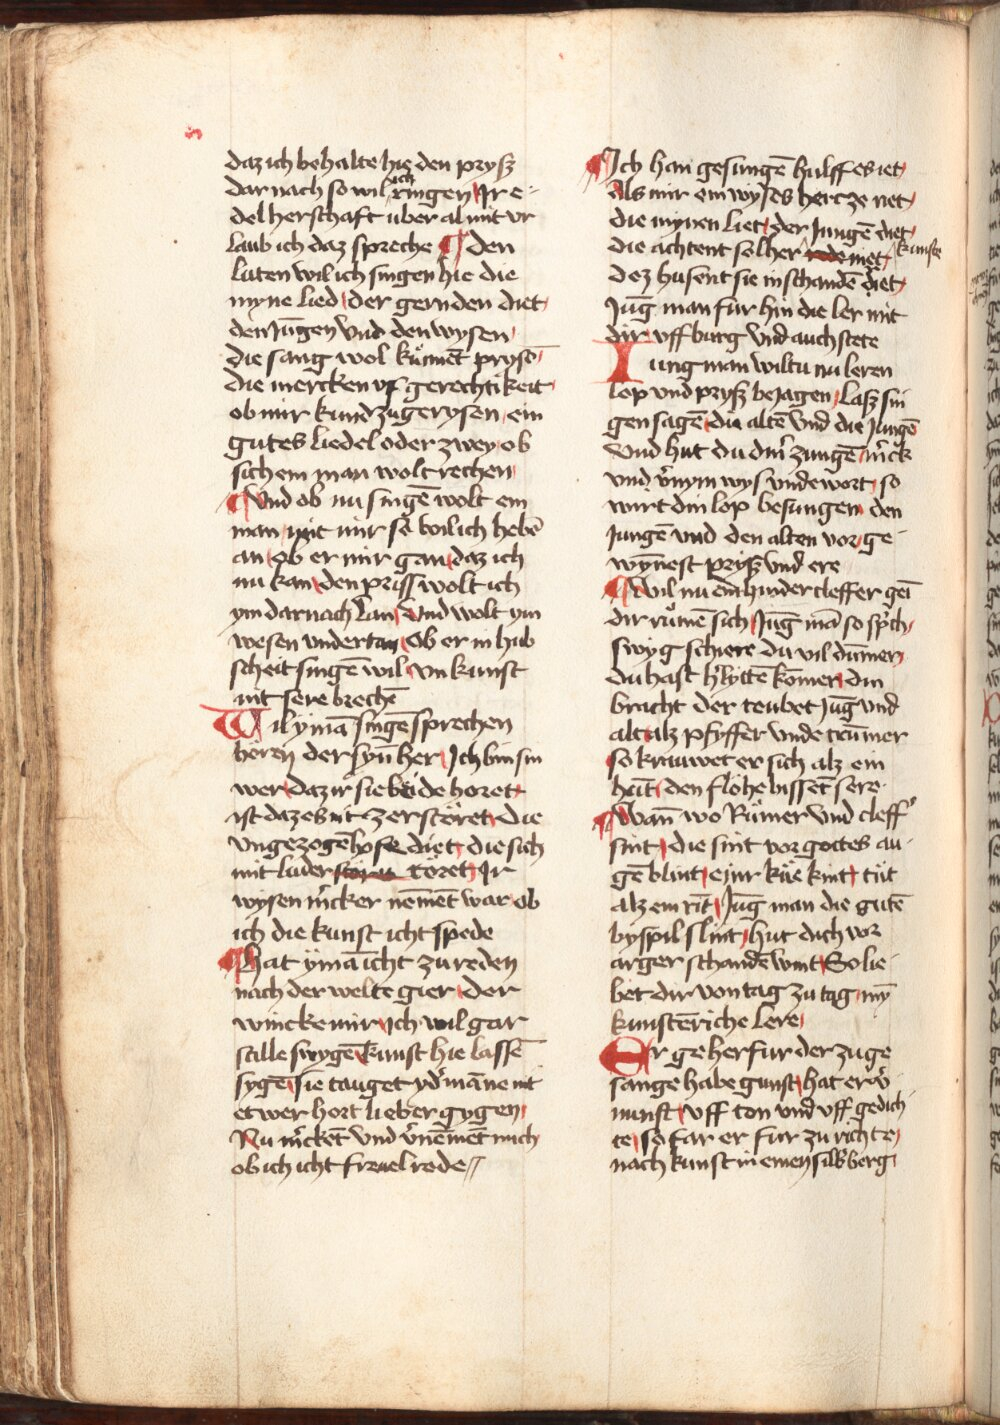 daz ich behalte hie den pryß
dar nach so wil ich ringen Ir e-
del herschaft uber al mit vr
laub ich daz spreche ¶ den
luten wil ich singen hie die
myne lied der gernden diet
den Jūgen vnd den wysen
die sang wol kūnnēt prysē
die mercken vf gerechtikeit
ob mir kund zu gerysen ein
gutes liedel oder zwey ob
sich ein man wolt rechen
¶ Vnd ob nu singē wolt ein
man mit mir so wil ich hebē
an ob er mir gan daz ich
nu kan den priss wolt ich
ym dar nach lan vnd wolt ym
wesen vndertan Ob er in hub
scheit singē wil vn kunst
nit sere brechē
Wil ymā singē sprechen
hēren der syn her Ich bin sin
wer daz ir sie beide horet
ist daz es nit zerstöret die
vngezogē hofe diet die sich
mit luder töret Ir
wysen m̄cker nēmēt war ob
ich die kunst icht spede
¶ hat ymā icht zu reden
nach der welte gier der
wincke mir ich wil gar
stille swygē kunst hie lassē
syge sie tauget yd'māne nit
etwer hort lieber gygen
Nu m̄ckēt vnd v̄nēmēt mich
ob ich icht freuel rede
¶ Ich han gesungē hulff es iet
als mir ein wyses hercze riet
die mynen liet der Jungē diet
die achtent selher kunste niet
dez husent sie in schandē diet
Jūg man fur hin die ler mit
dir vff burg vnd auch stete
Iung man wiltu nu leren
lop vnd pryß beJagen laß sin
gen sagē die altē vnd die Jungē
vnd hut du din' zungē m̄ck
vnd v̄nym wys vnde wort so
wirt din lop besungen den
Jungē vnd den alten vor ge-
wȳnest pryß vnd ere
¶ Wil nu ein hinder cleffer gei
dir rümē sich Jūg mā so sp̄ch
swyg schiere du vil dūmer
du hast h'lyttē komer din
bracht der teubet Jūg vnd
alt alz pfyffer vnde trūmer
so krauwet er sich alz ein
hūt den flöhe bissent sere
¶ Wan̄ wo Rümer vnd cleff'
sint die sint vor gottes au-
gē blint einr küe kint tüt
alz ein rīt Jūg man die gutē
byspil slint hut dich vor
arger schandē wint So lie-
bet dir von tag zu tag mȳ
kunstēriche lere
Er ge her fur der zu ge
sange habe gunst hat er v̄-
nunst vff ton vnd vff gedich-
te so far er fur zu richte
nach kunst in einen silb'berg